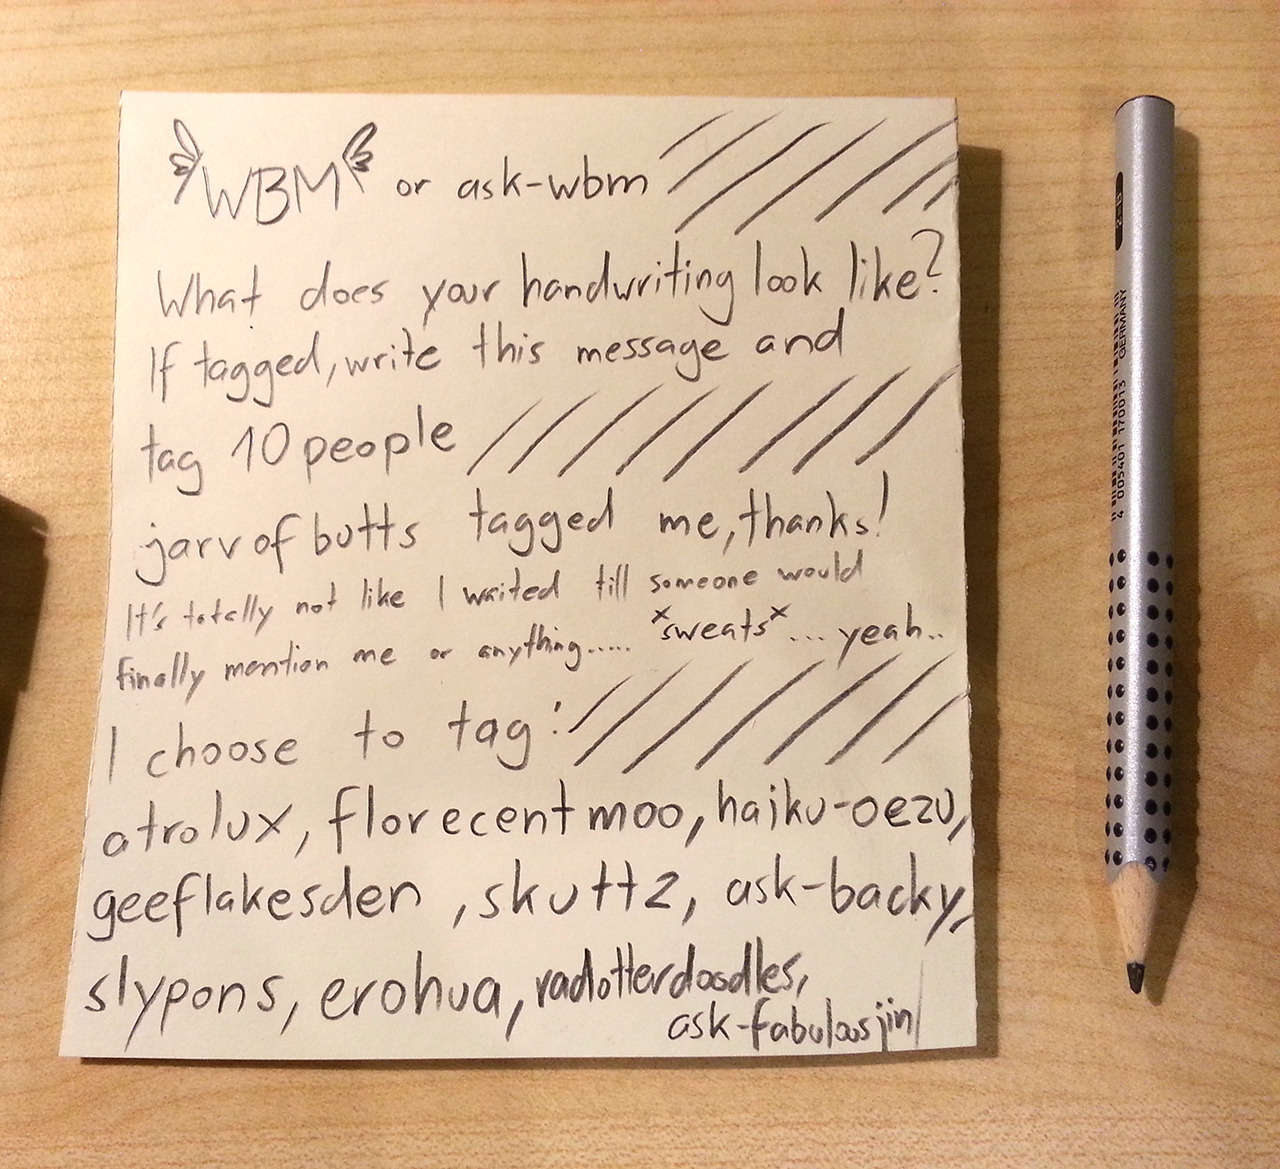 WBM or ask-wbm
What does your handwriting look like?
If tagged, write this message and
tag 10 people
jarvofbutts tagged me, thanks!
It's totally not like I waited till someone would
finally mention me or anything..... *sweats* ... yeah..
I choose to tag:
atrolux, florecentmoo, haiku-oezu,
geeflakesden, skuttz, ask-backy,
slypons, erohua, radotterdoodles,
ask-fabulousjin
4 005401 170013 GERMANY